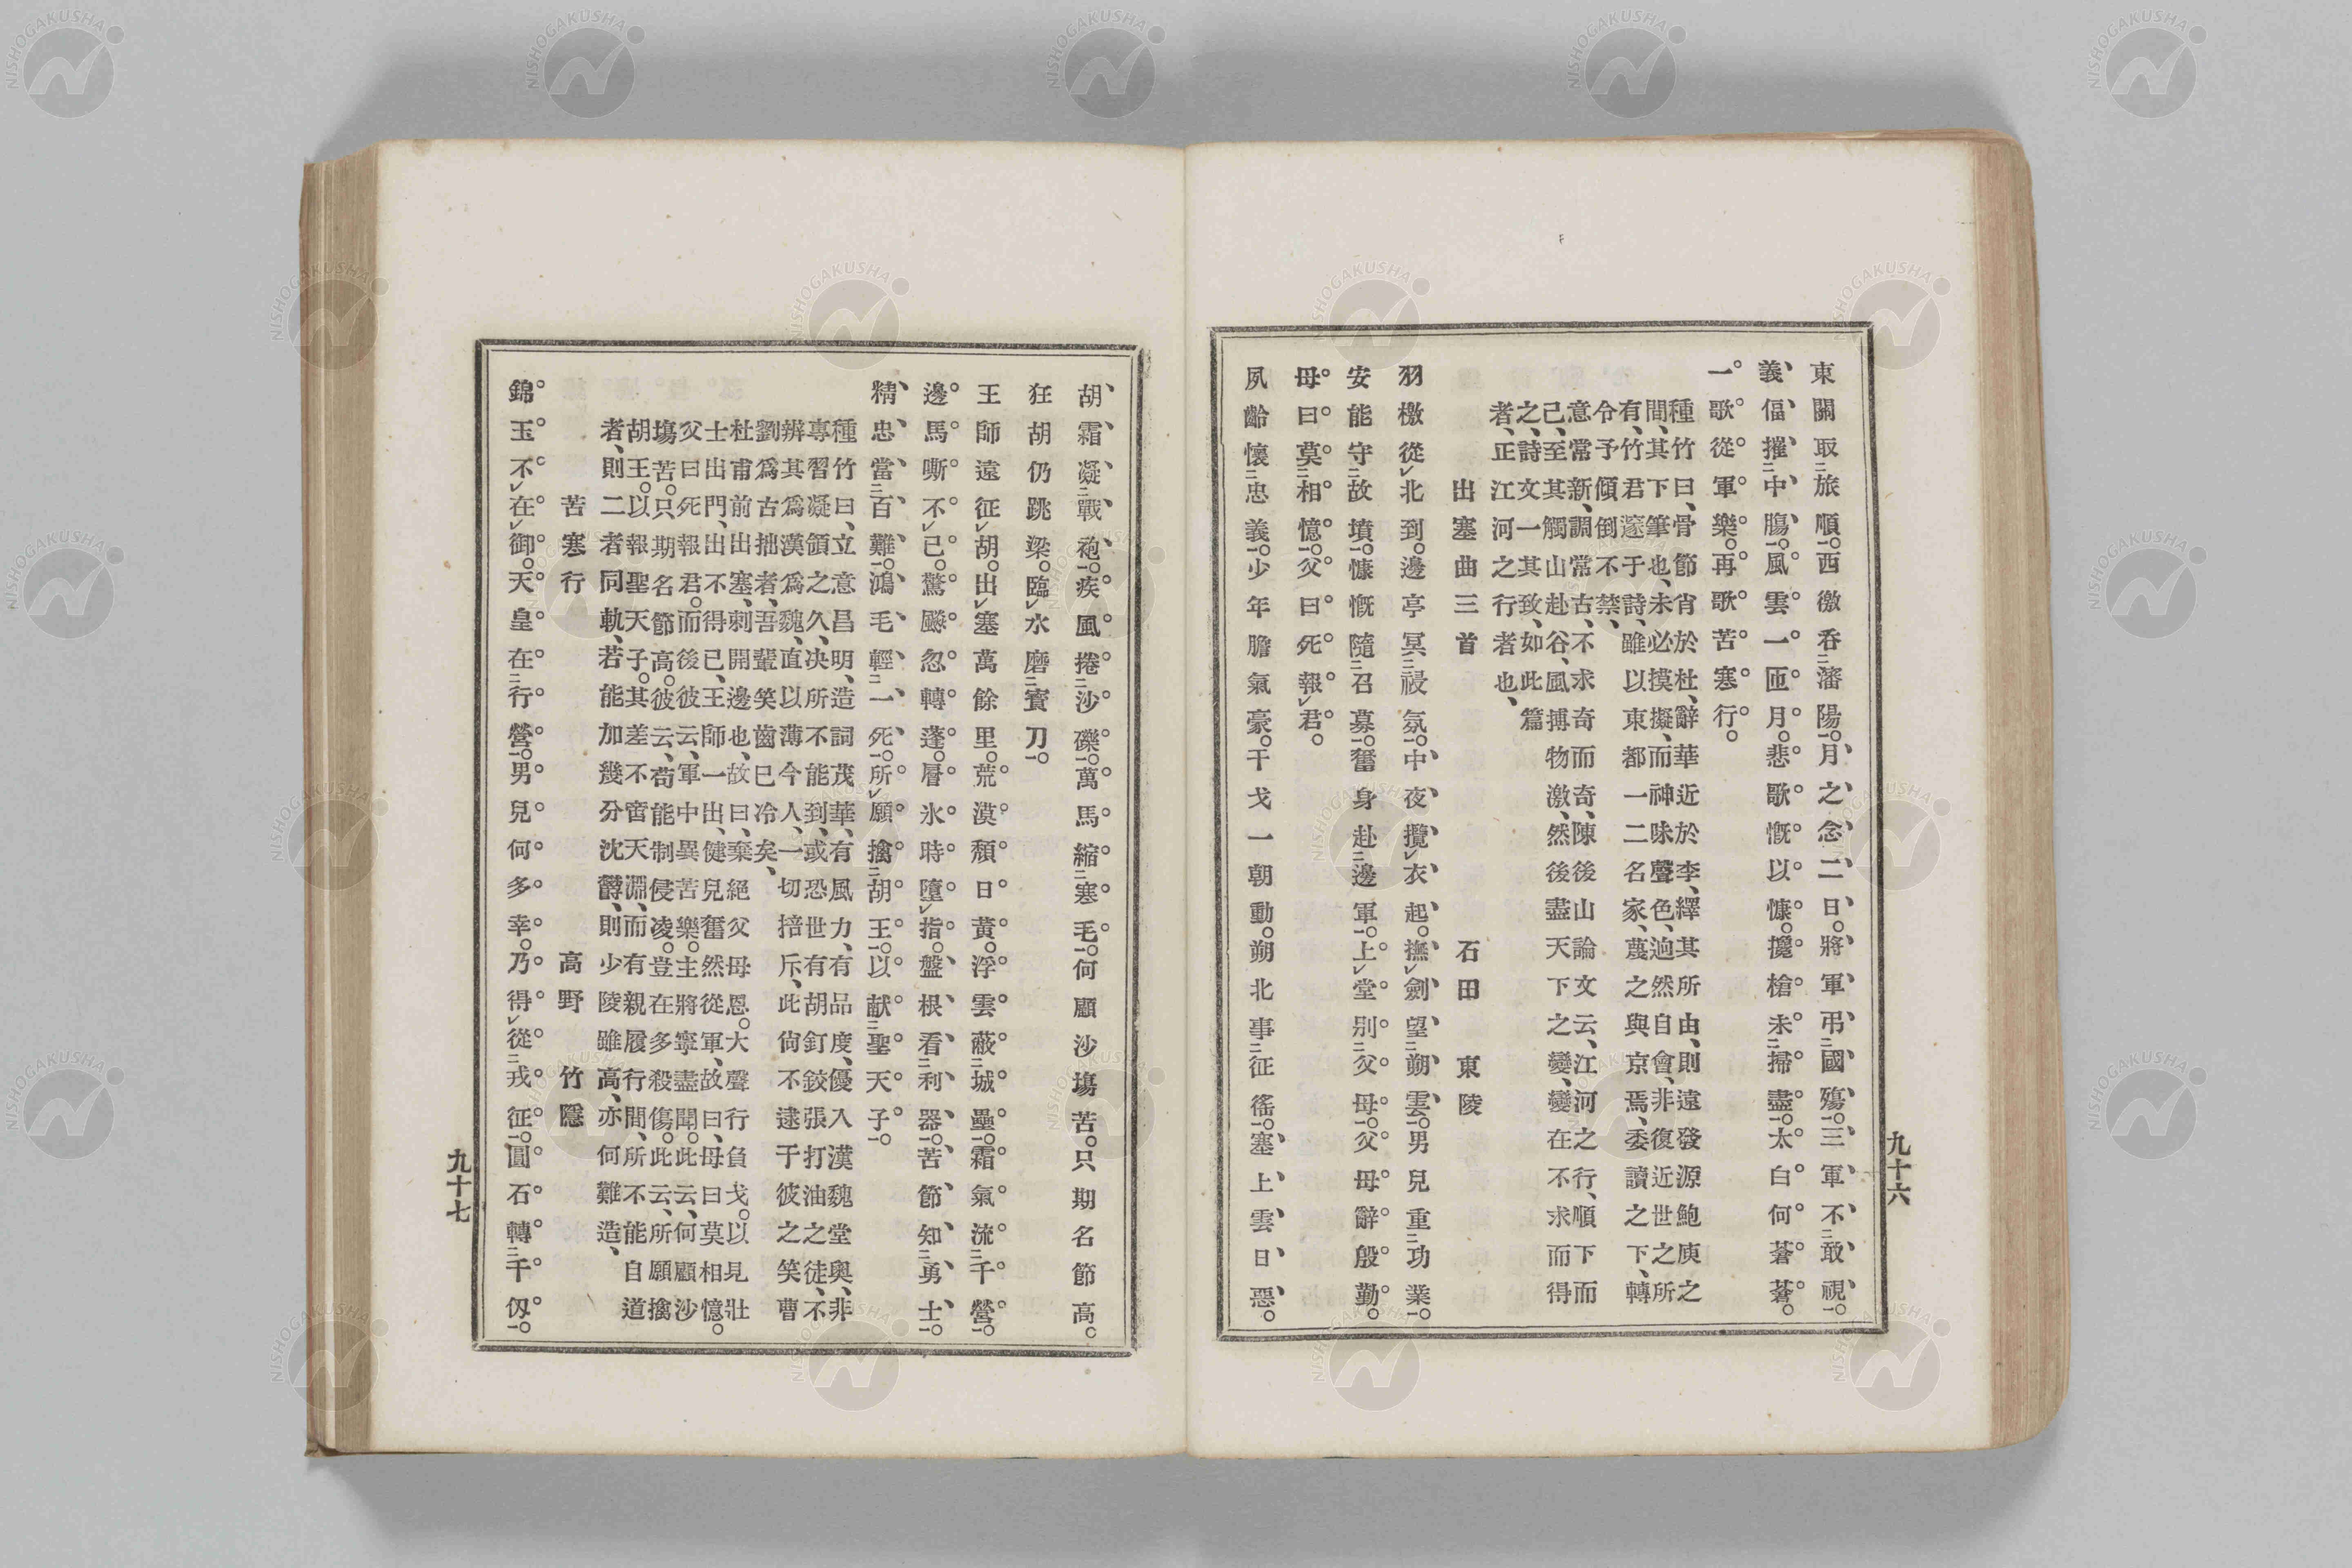 東關取旅順。西徼呑瀋陽。月之念二日。將軍弔國殤。三軍不敢視。
義偪摧中膓。風雲一匝月。悲歌慨以慷。攙槍未掃盡。太白何蒼蒼。
一歌從軍樂。再歌苦塞行。
種竹曰、骨節肖於杜、辭華近於李、繹其所由、則遠發源鮑庾之
間、其下筆也、未必摸擬、而神味聲色、逈然自會、非復近世之所
有、竹君邃于詩、雖以東都一二名家、蔑之與京焉、委讀之下、轉
令予傾倒不禁、
意常新、調常古、不求奇而奇、陳後山論文云、江河之行、順下而
已、至其觸山赴谷、風搏物激、然後盡天下之變、變在不求而得
之、詩文一其致、如此篇
者、正江河之行者也、
出塞曲三首 石田東陵
羽檄從北到。邊亭冥祲氛。中夜攬衣起。撫劍望朔雲。男兒重功業。
安能守故墳。慷慨隨召募。奮身赴邊軍。上堂別父母。父母辭殷勤。
母曰莫相憶。父曰死報君。
夙齡懷忠義。少年膽氣豪。干戈一朝動。朔北事征徭。塞上雲日惡。
九十六
胡霜凝戰袍。疾風捲沙礫。萬馬縮塞毛。何顧沙塲苦。只期名節高。
狂胡仍跳梁。臨水磨寶刀。
王師遠征胡。出塞萬餘里。荒漠頽日黃。浮雲蔽城壘。霜氣流千營。
邊馬嘶不已。驚飈忽轉蓬。層氷時墮指。盤根看利器。苦節知勇士。
精忠當百難。鴻毛輕一死。所願擒胡王。以献聖天子。
種竹曰、立意昌明、造詞茂華、有風力、有品度、優入漢魏堂奧、非
專習凝領之久、决所不能到、或恐世有胡釘鉸張打油之徒、不
辨其爲漢爲魏、直以薄今人、一切掊斥、此尙不逮于彼之笑曹
劉爲古拙者、吾輩笑齒已冷矣、
杜甫前出塞、刺開邊也、故曰、棄絕父母恩。大聲行負戈。以見壯
士出門、出不得已、王師一出、健兒奮然從軍、故曰、母曰莫相憶。
父曰死報君。而後彼云、軍中異苦樂。主將寧盡聞。此云、何顧沙
塲苦。只期名節高。彼云、苟能制侵凌。豈在多殺傷。此云、所願擒
胡王。以報聖天子。其差不啻天淵、而有親履行間、所不能自道
者、則二者同軌、若能加幾分沈欝、則少陵雖高、亦何難造、
苦塞行 高野竹隱
錦玉不在御。天皇在行營。男兒何多幸。乃得從戎征。圓石轉千仭。
九十七